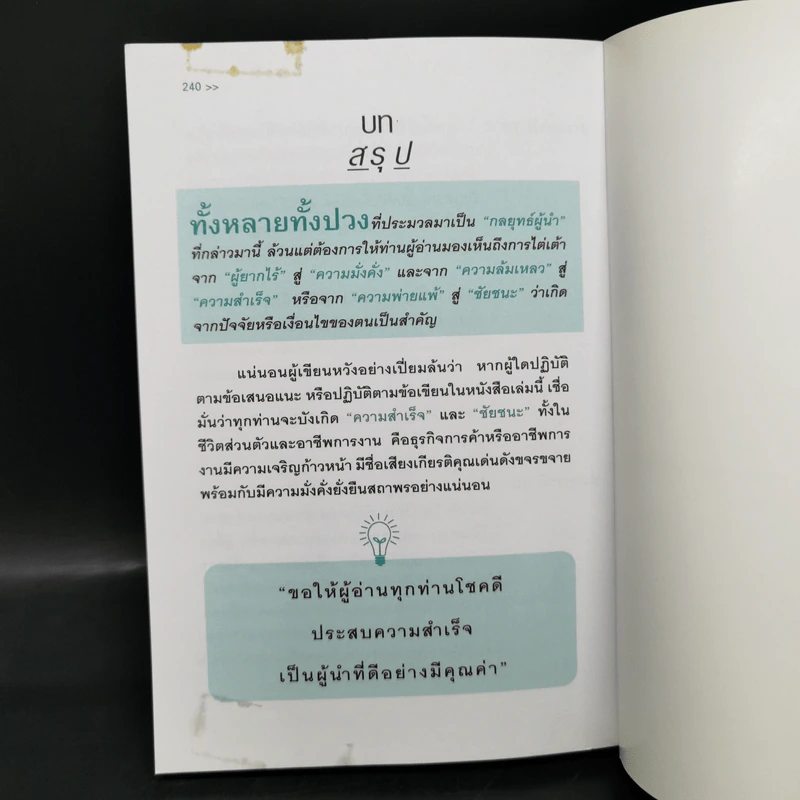 240 >>
บท
สรุป
ทั้งหลายทั้งปวงที่ประมวลมาเป็น “กลยุทธ์ผู้นำ”
ที่กล่าวมานี้ ล้วนแต่ต้องการให้ท่านผู้อ่านมองเห็นถึงการไต่เต้า
จาก “ผู้ยากไร้” สู่ “ความมั่งคั่ง” และจาก “ความล้มเหลว” สู่
“ความสำเร็จ” หรือจาก “ความพ่ายแพ้” สู่ “ชัยชนะ” ว่าเกิด
จากปัจจัยหรือเงื่อนไขของตนเป็นสำคัญ
แน่นอนผู้เขียนหวังอย่างเปี่ยมล้นว่า หากผู้ใดปฏิบัติ
ตามข้อเสนอแนะ หรือปฏิบัติตามข้อเขียนในหนังสือเล่มนี้ เชื่อ
มั่นว่าทุกท่านจะบังเกิด “ความสำเร็จ” และ “ชัยชนะ” ทั้งใน
ชีวิตส่วนตัวและอาชีพการงาน คือธุรกิจการค้าหรืออาชีพการ
งานมีความเจริญก้าวหน้า มีชื่อเสียงเกียรติคุณเด่นดังขจรขจาย
พร้อมกับมีความมั่งคั่งยั่งยืนสถาพรอย่างแน่นอน
“ขอให้ผู้อ่านทุกท่านโชคดี
ประสบความสำเร็จ
เป็นผู้นำที่ดีอย่างมีคุณค่า”